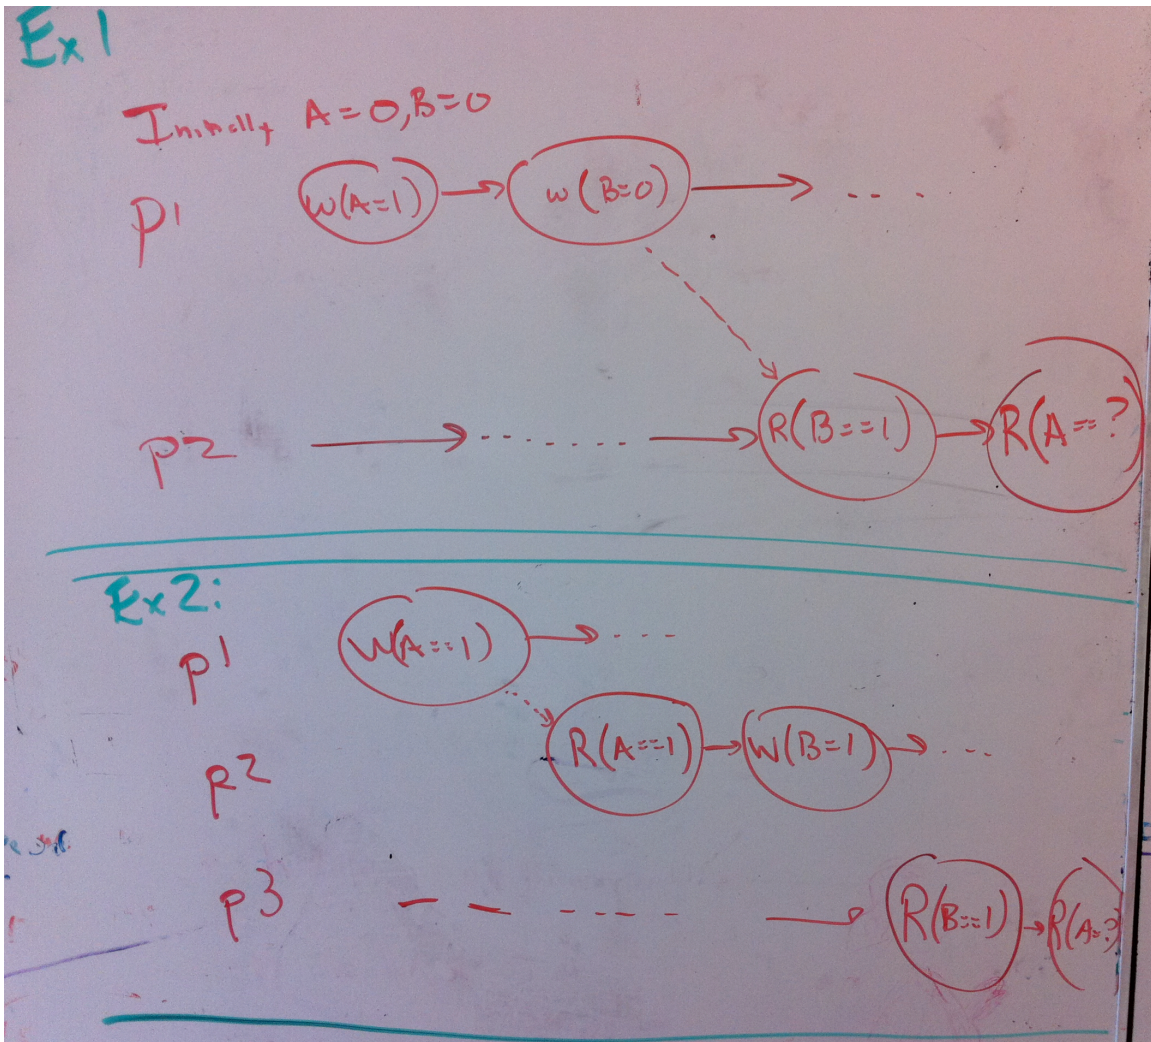 Ex1
Initially A=0, B=0
P1 W(A=1) w(B=0)
P2 R(B==1) R(A==?)
Ex2:
P1 W(A==1)
P2 R(A==1) W(B=1)
P3 R(B==1) R(A=?)